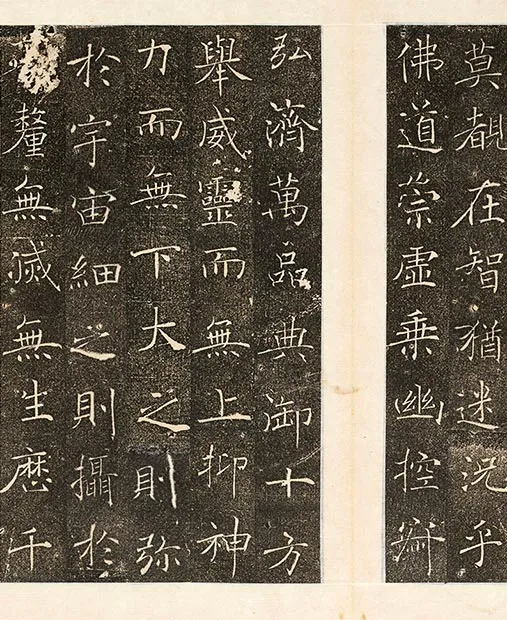 莫覩在智猶迷況乎
佛道崇虛乗幽控寂
弘濟萬品典御十方
舉威靈而無上抑神
力而無下大之則弥
於宇宙細之則攝於
釐無滅無生歷千